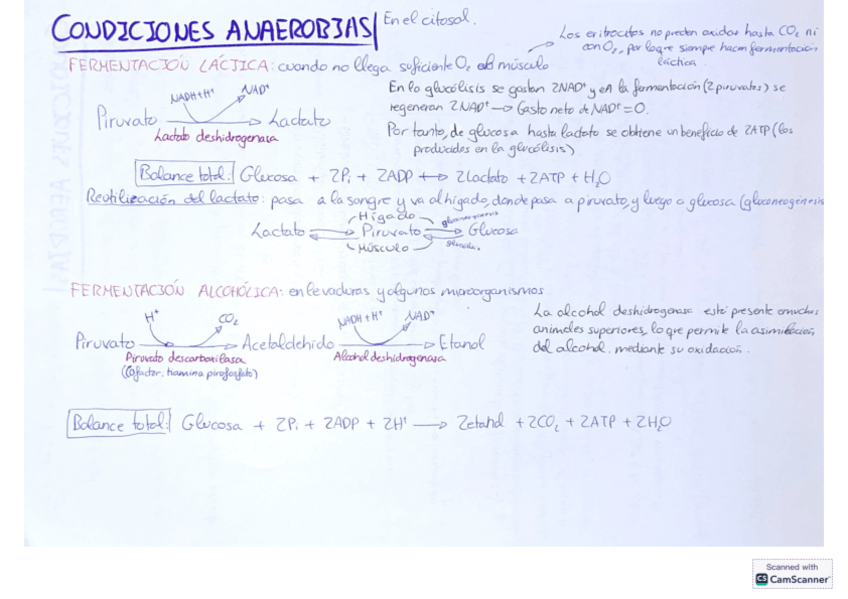 CONDICIONES ANAEROBIAS
En el citosol.
Los eritrocitos no pueden oxidar hasta CO₂ ni
con O₂, por lo que siempre hacen fermentación
láctica
FERMENTACIÓN LÁCTICA: cuando no llega suficiente O₂ al músculo
NADH+H⁺ NAD⁺
Piruvato → Lactato
Lactato deshidrogenasa
En la glucólisis se gastan 2NAD⁺ y en la fermentación (2 piruvatos) se
regeneran 2NAD⁺ → Gasto neto de NAD⁺ = 0.
Por tanto, de glucosa hasta lactato se obtiene un beneficio de 2ATP (los
producidos en la glucólisis)
Balance total: Glucosa + 2Pi + 2ADP ↔ 2Lactato + 2ATP + H₂O
Reutilización del lactato: pasa a la sangre y va al hígado, donde pasa a piruvato, y luego a glucosa (gluconeogénesis
Hígado
Lactato Piruvato Glucosa
MÚSCULO
FERMENTACIÓN ALCOHÓLICA: en levaduras y algunos microorganismos
H⁺ CO₂ NADH+H⁺ NAD⁺
Piruvato → Acetaldehido → Etanol
Piruvato descarboxilasa Alcohol deshidrogenasa
(Cofactor: tiamina pirofosfato)
La alcohol deshidrogenasa está presente en muchos
animales superiores, lo que permite la asimilación
del alcohol, mediante su oxidación.
Balance total: Glucosa + 2Pi + 2ADP + 2H⁺ → 2etanol + 2CO₂ + 2ATP + 2H₂O
Scanned with
CS CamScanner